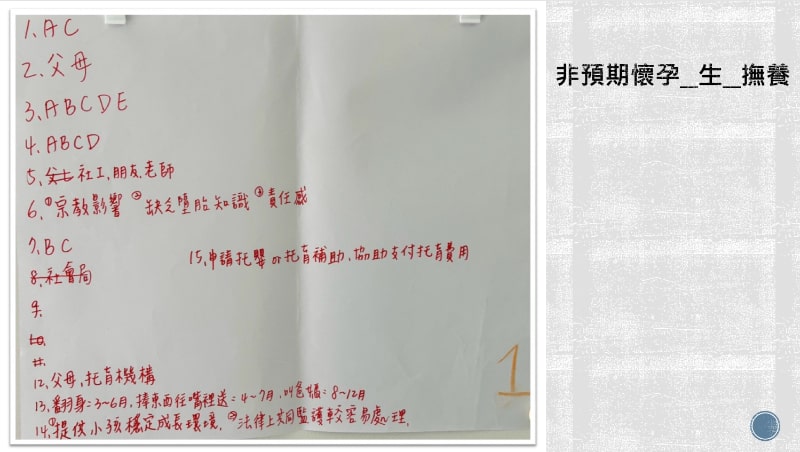 非預期懷孕__生__撫養
1. AC
2. 父母
3. ABCDE
4. ABCD
5. 父七 社工, 朋友, 老師
6. ①宗教影響 ②缺乏墮胎知識 ③責任感
7. BC
8. 社會局
15. 申請托嬰 or 托育補助, 協助支付托育費用
9.
10.
11.
12. 父母, 托育機構
13. 翻身:3~6月, 捧東西往嘴裡送:4~7月, 叫爸媽:8~12月
14. ①提供小孩穩定成長環境. ②法律上共同監護較容易處理.
1